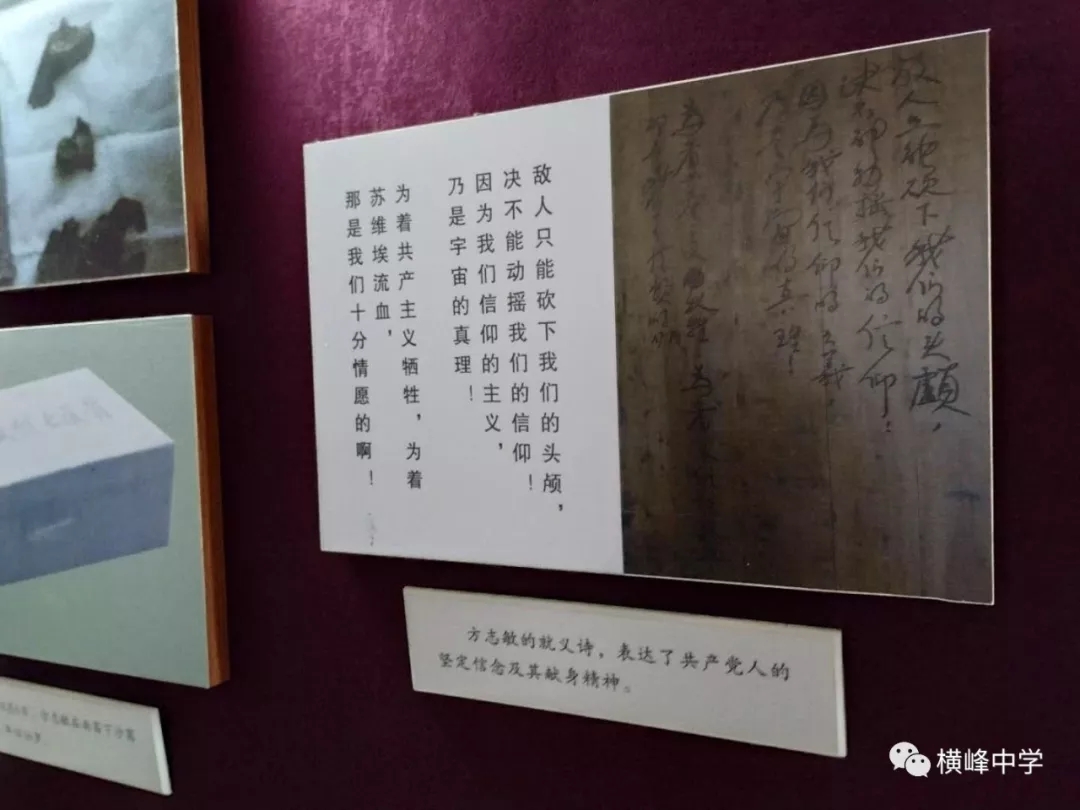 敌人只能砍下我们的头颅，
决不能动摇我们的信仰！
因为我们信仰的主义，
乃是宇宙的真理！
为着共产主义牺牲，为着
苏维埃流血，
那是我们十分情愿的啊！
敌人只能砍下我们的头颅，
决不能动摇我们的信仰！
因为我们信仰的主义，
乃是宇宙的真理！
方志敏的就义诗，表达了共产党人的
坚定信念及其献身精神。
横峰中学